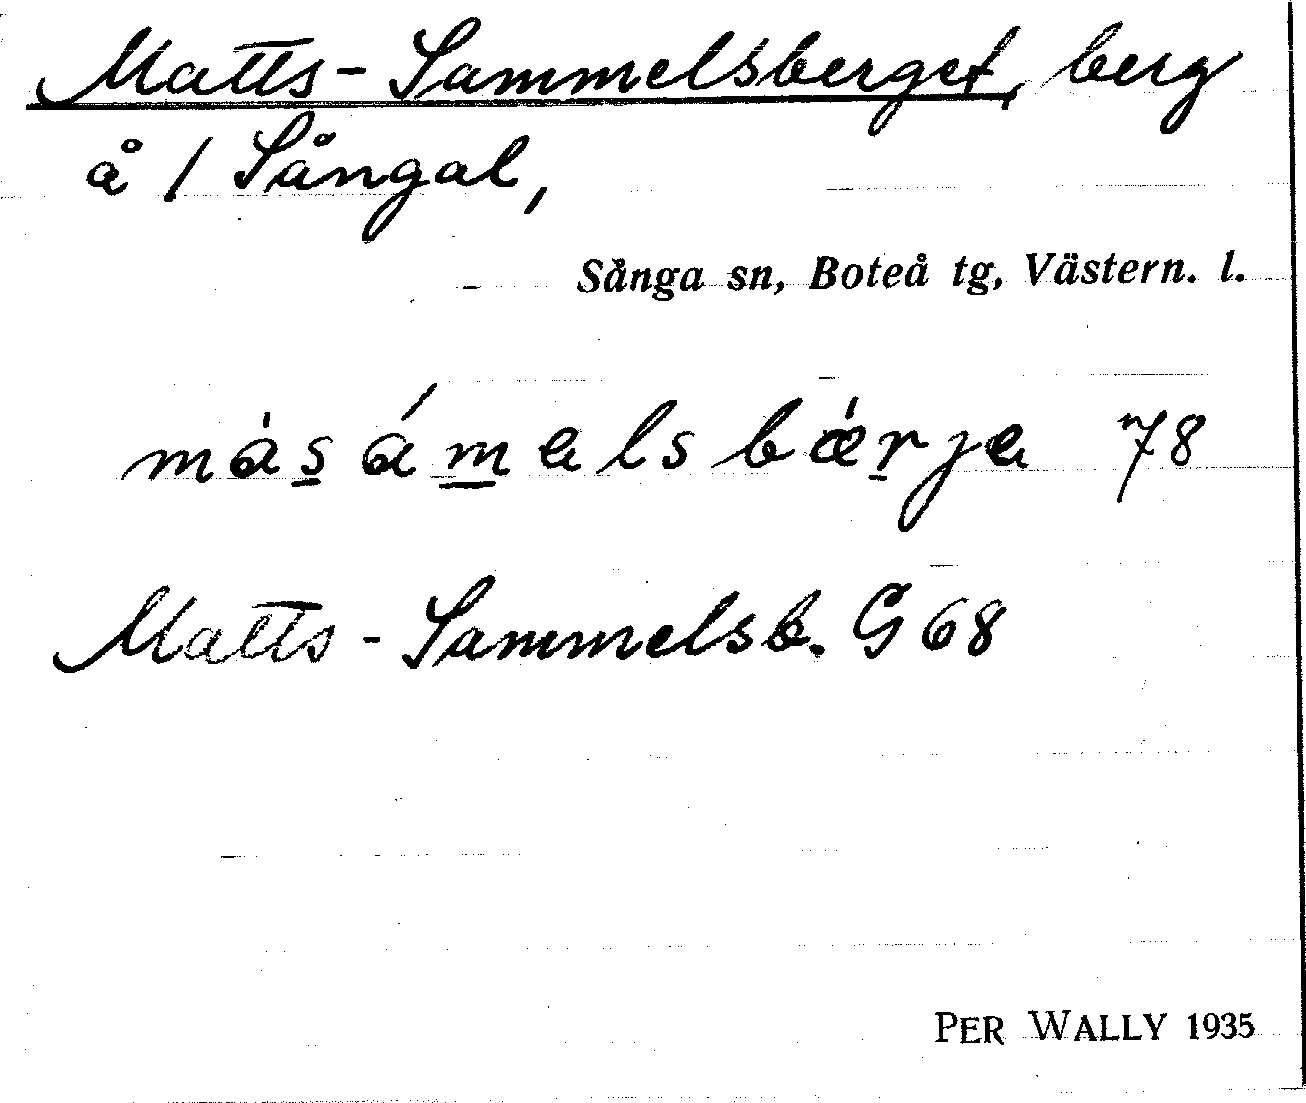 Matts-Sammelsberget, berg
å / Sångal,
Sånga sn, Boteå tg, Västern. l.
màs̲ám̲elsbæ̀r̲je 78
Matts-Sammelsb. G 68
PER WALLY 1935